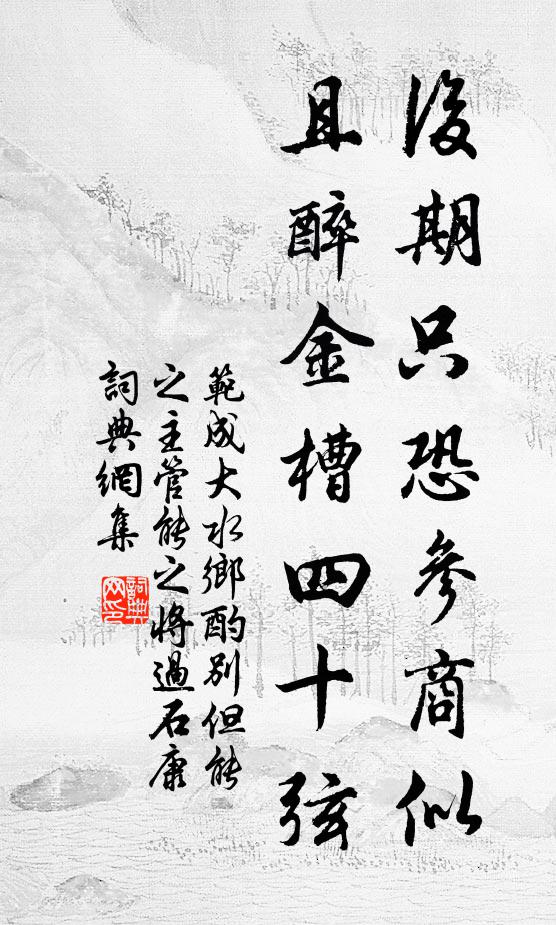 後期只恐參商似
且醉金槽四十弦
範成大水鄉酌別但能
之主管能之將過石康
詞典網集